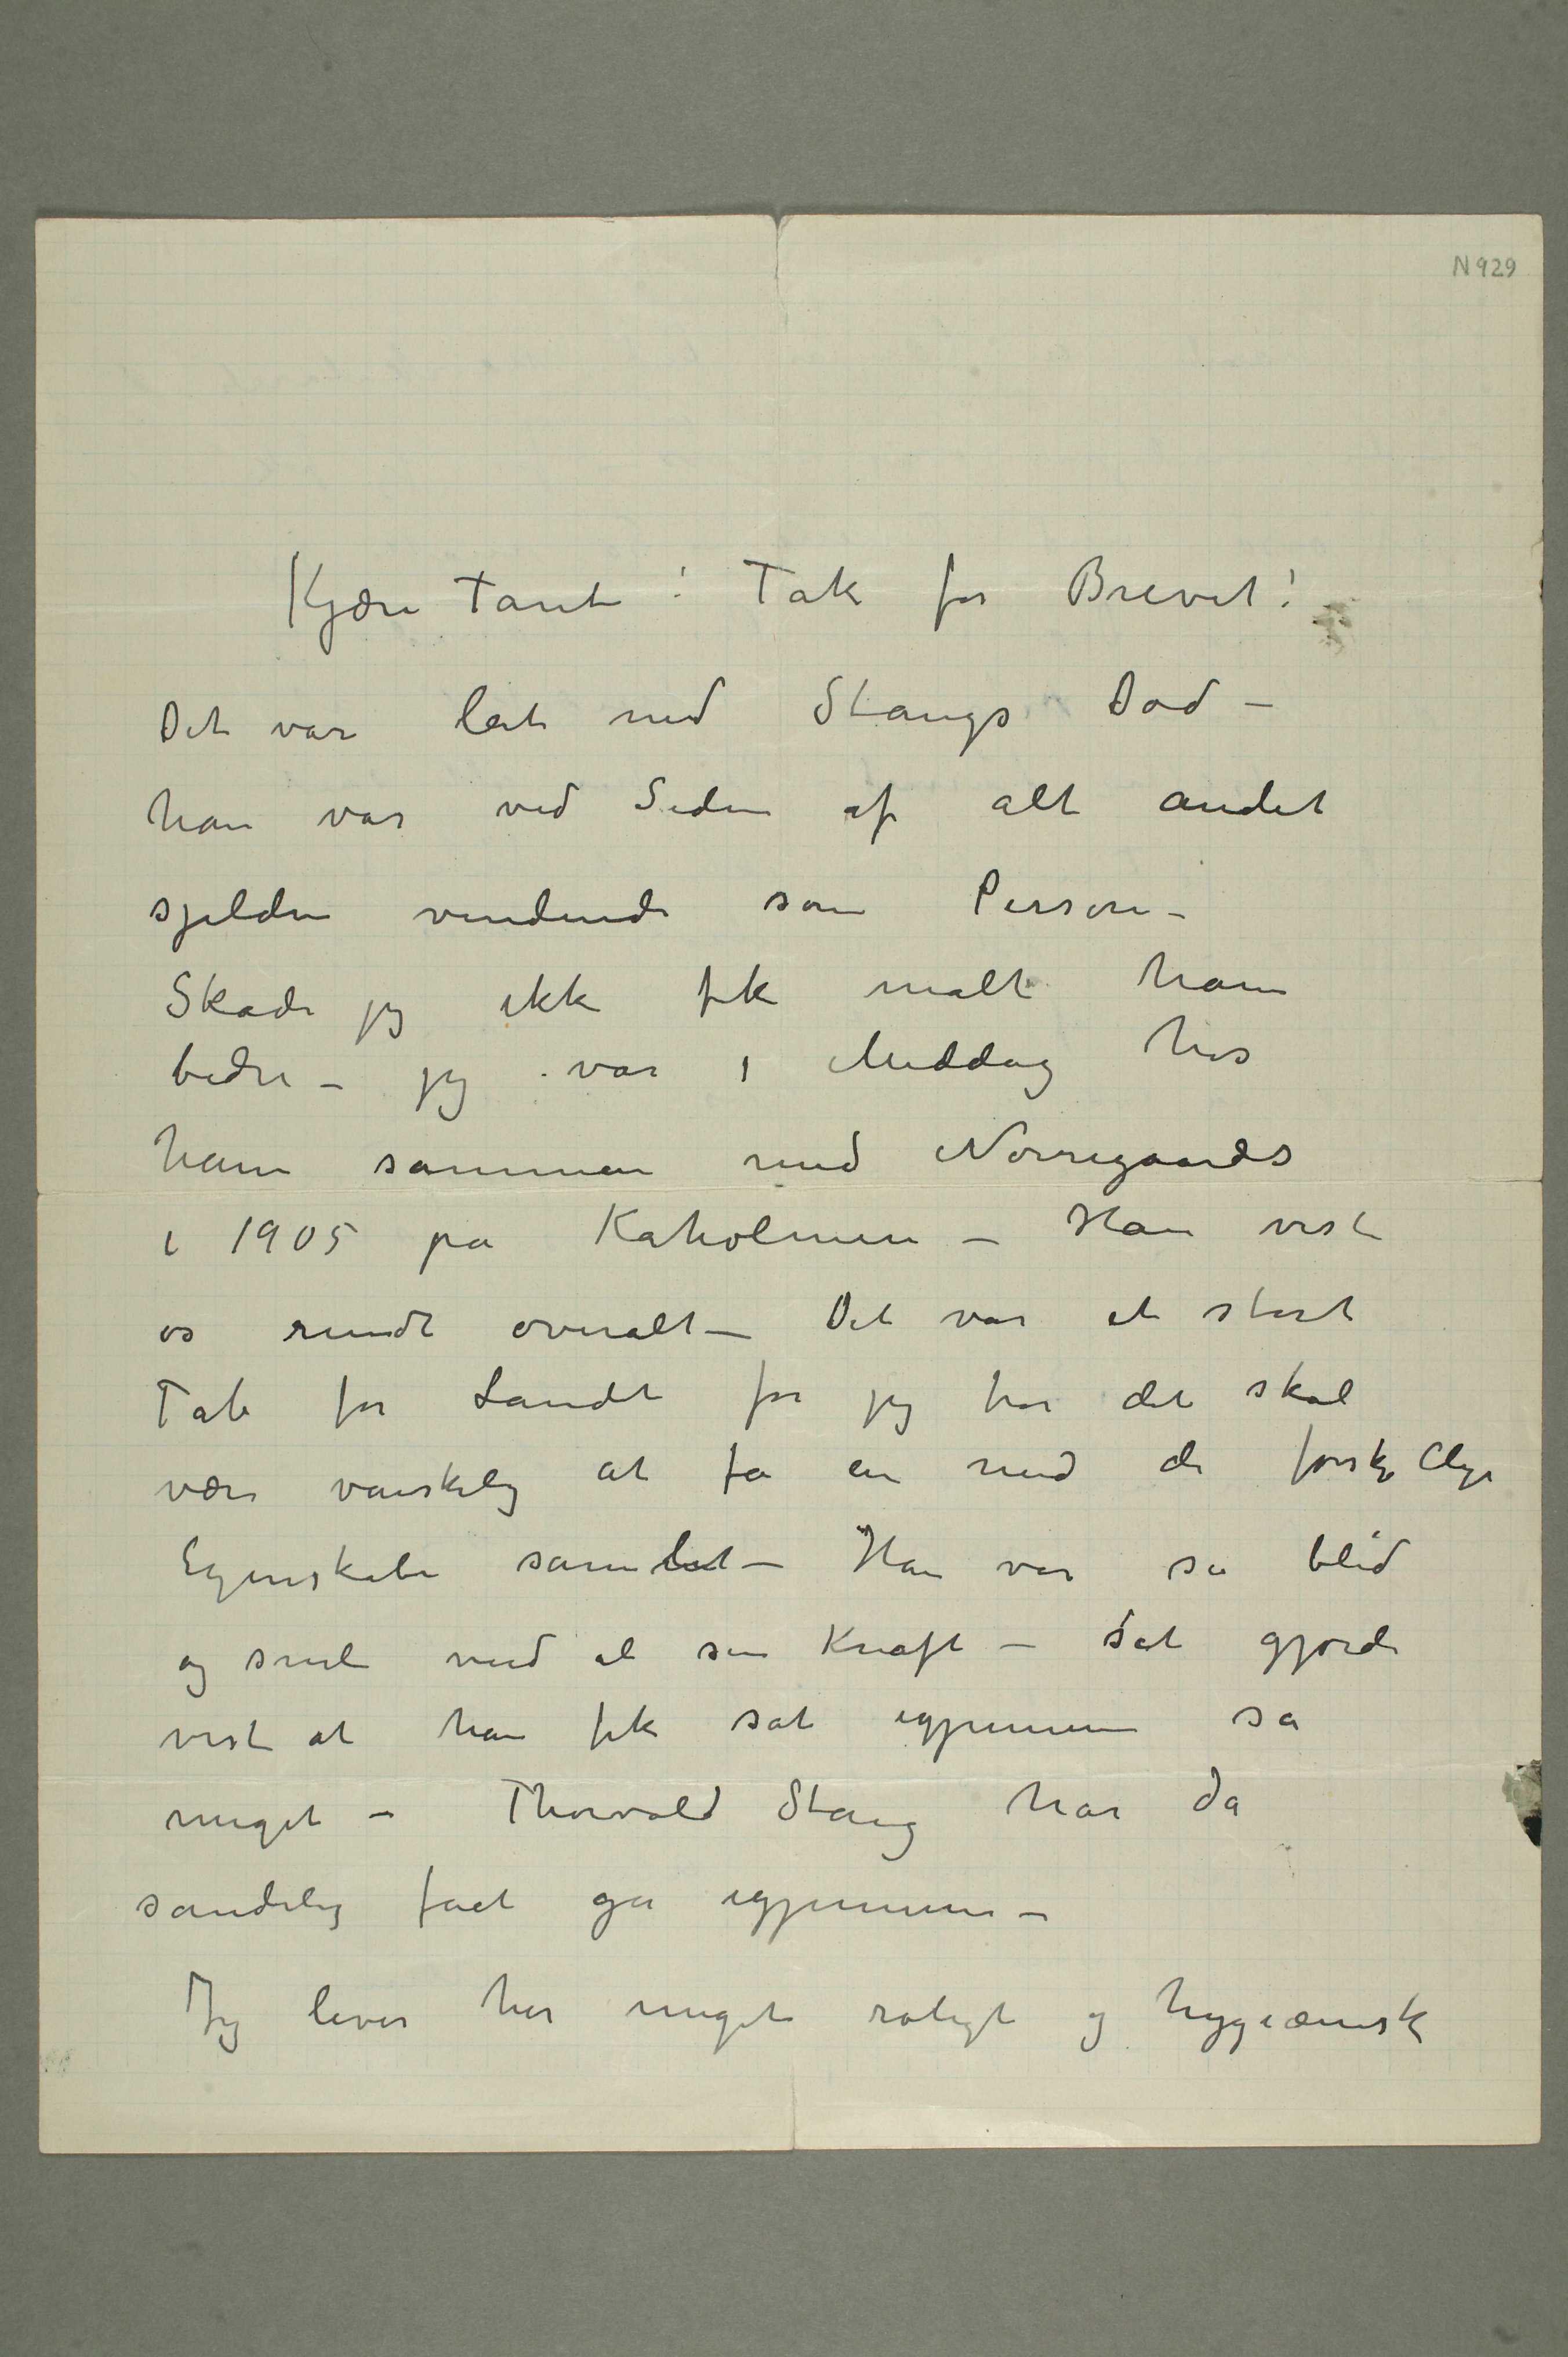 N 929
Kjære Tante! Tak for Brevet!
Det var leit med Stangs Død –
han var ved Siden af alt andet
sjelden vindende som Person –
Skade jeg ikke fik malt ham
bedre – jeg var i Middag hos
ham sammen med Nørregaards
i 1905 på Kaholmen – Han viste
os rundt overalt – Det var et stort
Tab for Landet for jeg tror det skal
være vanskelig at få en med de forskjellige
Egenskaber samlet – Han var så blid
og snil med al sin Kraft – Det gjorde
vist at han fik sat igjennem så
meget – Thorvald Stang har da
sandelig fået gå igjennem –
Jeg lever her meget roligt og hygiænisk